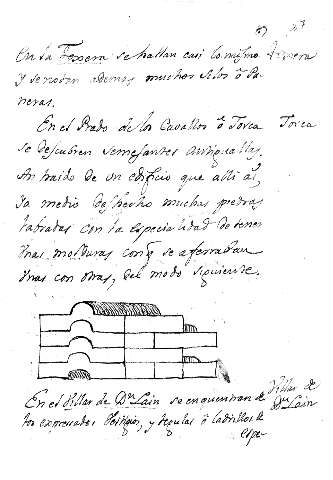 En la Terrera se hallan casi lo mismo Terrera
y se notan ademas muchos silos ô Pa
neras.
En el Prado de los Cavallos ô Torca Torca
se descubren semejantes antiguallas.
An traido de un edificio que alli aỹ
ya medio deshecho muchas piedras
labradas con la especialidad de tener
unas molduras con q̃ se aferraban
unas con otras, del modo siguiente.
En el Pillar de Dn. Lain se enquentran de Pillar de
los expresados Vestigios, y tegulas ô ladrillos de Dn. Lain
espe-